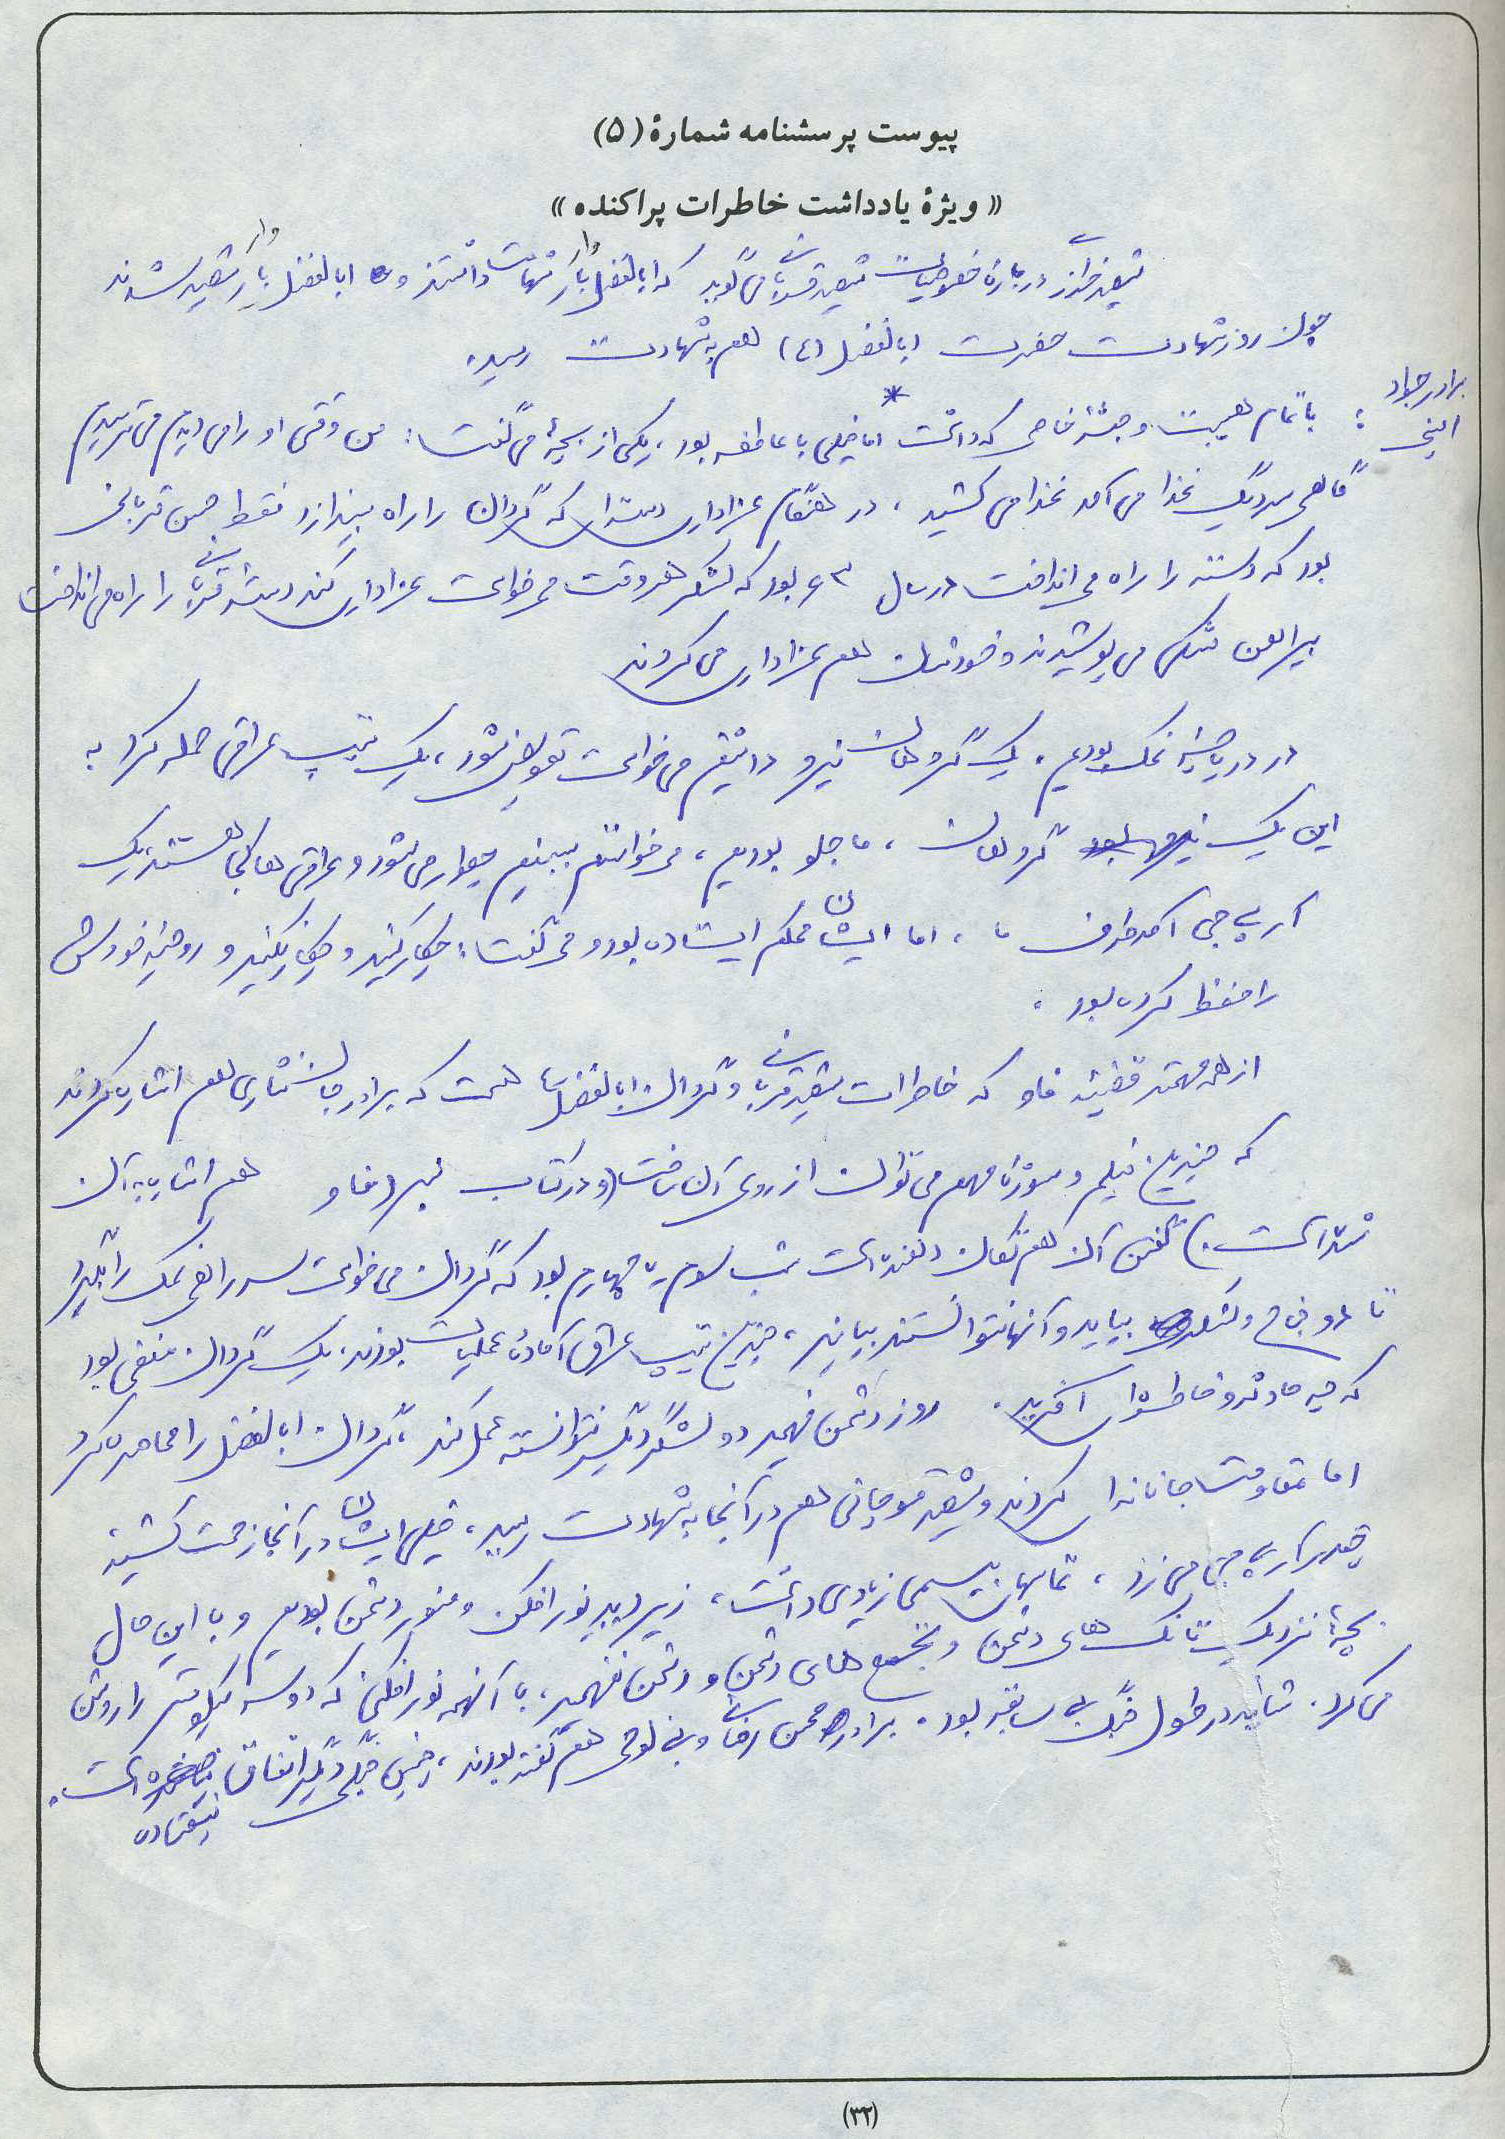 پیوست پرسشنامه شمارهٔ (۵)
« ویژهٔ یادداشت خاطرات پراکنده »
شهید خرازی درباره خصوصیات شهید قربانی می گوید که ابالفضل وار شهامت داشتند و ابالفضل وار شهید شدند
چون روز شهادت حضرت ابالفضل (ع) هم به شهادت رسید.
برادر جواد
امینی : با تمام هیبت و جثهٔ خاصی که داشت اما خیلی با عاطفه بود، یکی از بچه‌ها می گفت: من وقتی او را می دیدم می ترسیدم
گاهی سر دیگ غذا می آمد غذا می کشید، در هنگام عزاداری دسته‌ای که گردان را راه بیندازد فقط حسن قربانی
بود که دسته را راه می انداخت در سال ۶۳ بود که لشکر هر وقت می خواست عزاداری کند دسته قربانی را راه می انداخت
پیراهن مشکی می پوشیدند و خودشان هم عزاداری می کردند
در دریاچهٔ نمک بودیم. یک گروهان نیرو داشتیم می خواست تعویض شود، یک تیپ عراقی حمله کرد به
این یک گروهان، ما جلو بودیم، می خواستیم ببینیم چطور می شود و عراقی ها کجا هستند، یک
آر پی جی آمد طرف ما، اما ایشان محکم ایستاده بود و می گفت: چکار کنید و چکار نکنید و روحیه خودش
را حفظ کرده بود.
از همه مهمتر قضیهٔ فاو که خاطرات شهید قربانی و گردان ابالفضل هست که برادر جان نثاری هم اشاره کردند
که چندین فیلم و سوژهٔ مهم می توان از روی آن ساخت (و در کتاب نبرد فاو هم اشاره به آن
شده است.) گفتن آن هم تکان دهنده است شب سوم یا چهارم بود که گردان می خواست سه راهی نمک را بگیرد
تا و لشکر بیاید و آنها نتوانستند بیایند، چندین تیپ عراقی آماده عملیات بودند، یک گردان مخفی بود
که چه حادثه و خاطره‌ای آفرید. روز دشمن فهمید دو لشگر دیگر نتوانسته عمل کند، گردان ابالفضل را محاصره کرد
اما مقاومت جانانه‌ای کردند و شهید موجانی هم در آنجا به شهادت رسید، خیلی ایشان در آنجا زحمت کشید،
چقدر آر پی جی می زد، تماسهای بیسیمی زیادی داشت، زیر دید نورافکن و منور دشمن بودیم و با این حال
بچه‌ها نزدیک تانک های دشمن و تجمع های دشمن و دشمن نفهمید، با آنهمه نورافکن که دو سه کیلومتر را روشن
می کرد. شاید در طول جنگ بی سابقه بود. برادر محسن رضایی و بنی لوحی هم گفته بودند، چنین جنگی دیگر اتفاق نیفتاده است.
(۳۲)